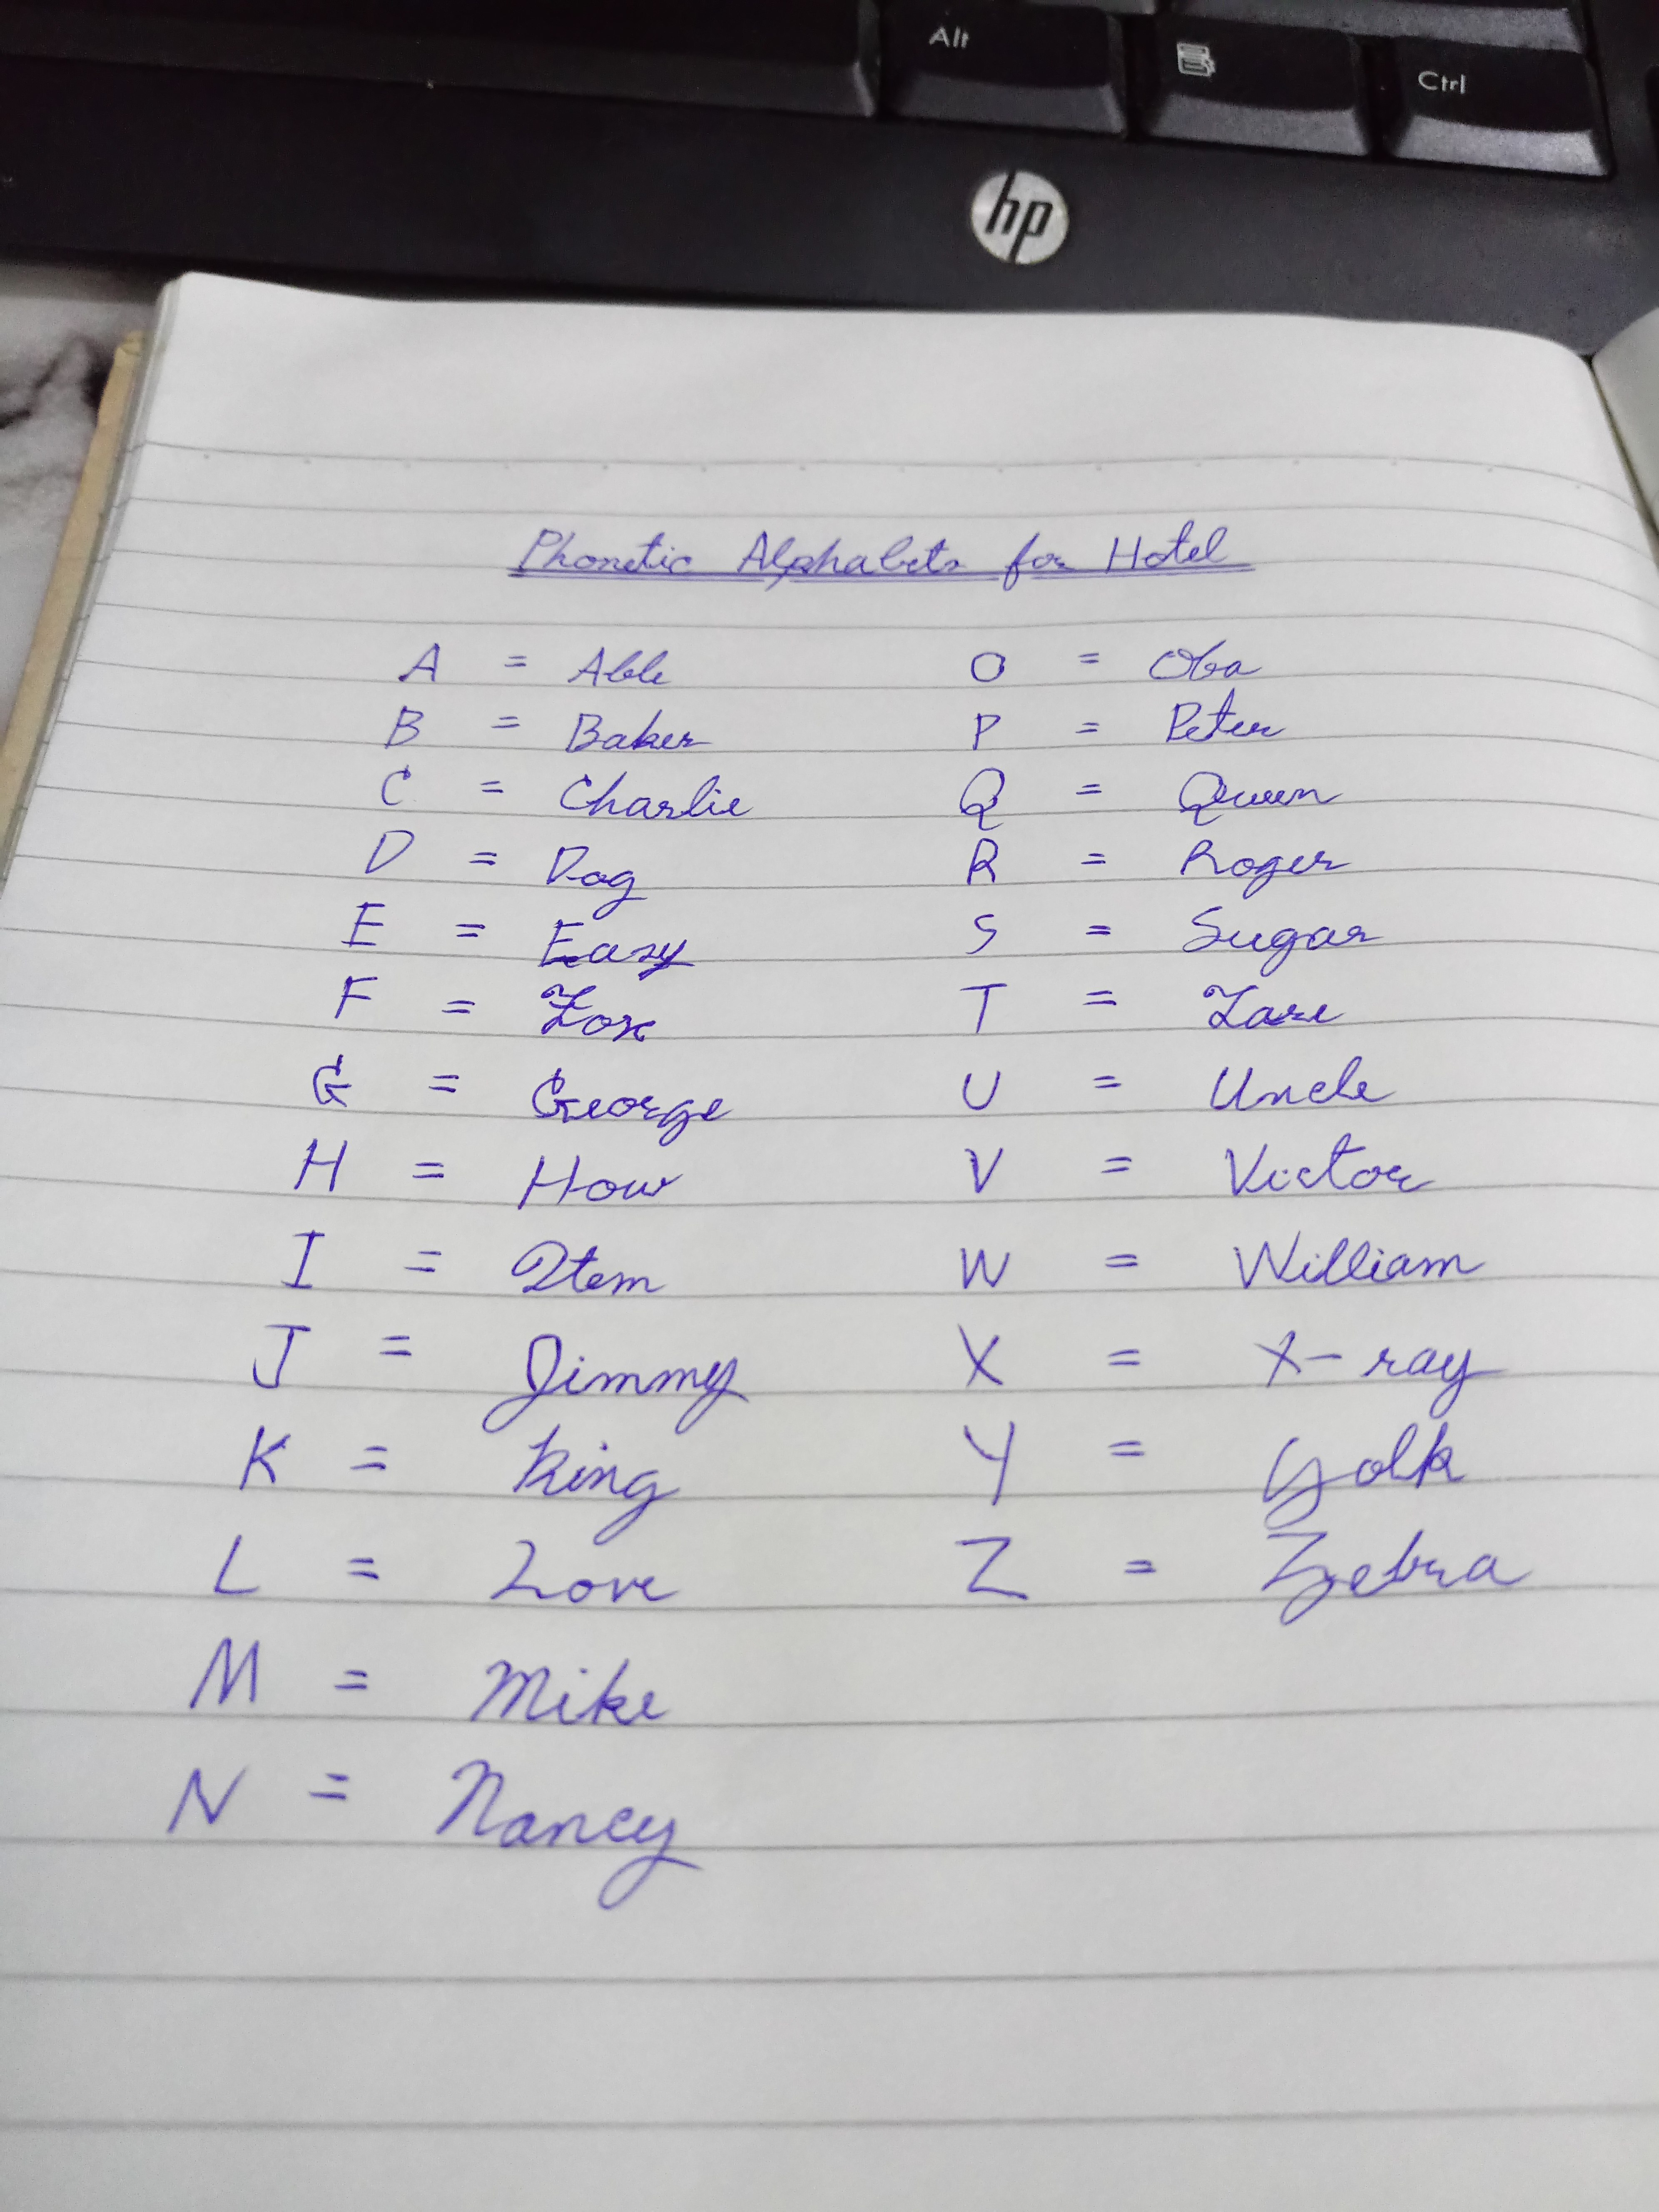 Alt
Ctrl
hp
Phonetic Alphabets for Hotel
A = Able
B = Baker
C = Charlie
D = Dog
E = Easy
F = Fox
G = George
H = How
I = Item
J = Jimmy
K = King
L = Love
M = Mike
N = Nancy
O = Oba
P = Peter
Q = Queen
R = Roger
S = Sugar
T = Tare
U = Uncle
V = Victor
W = William
X = X-ray
Y = Yolk
Z = Zebra